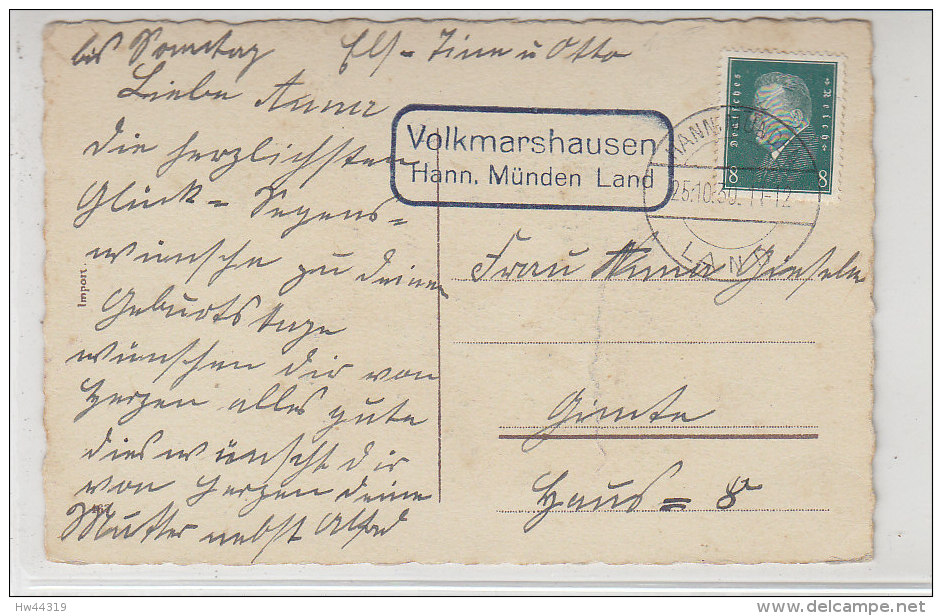 bis Sonntag Els - Tine u Otto
Liebe Anna
die herzlichsten
Glück = Segens =
wünsche zu deinem
Geburtstage
wünschen dir von
Herzen alles gute
dies wünscht dir
von Herzen deine
Mutter nebst Alfred
Import
Volkmarshausen
Hann. Münden Land
Deutsches Reich
8 8
25.10.30. 11-12
LAND
Frau Anna Giesele
Gimte
Haus = 8
Hw44319
www.delcampe.net